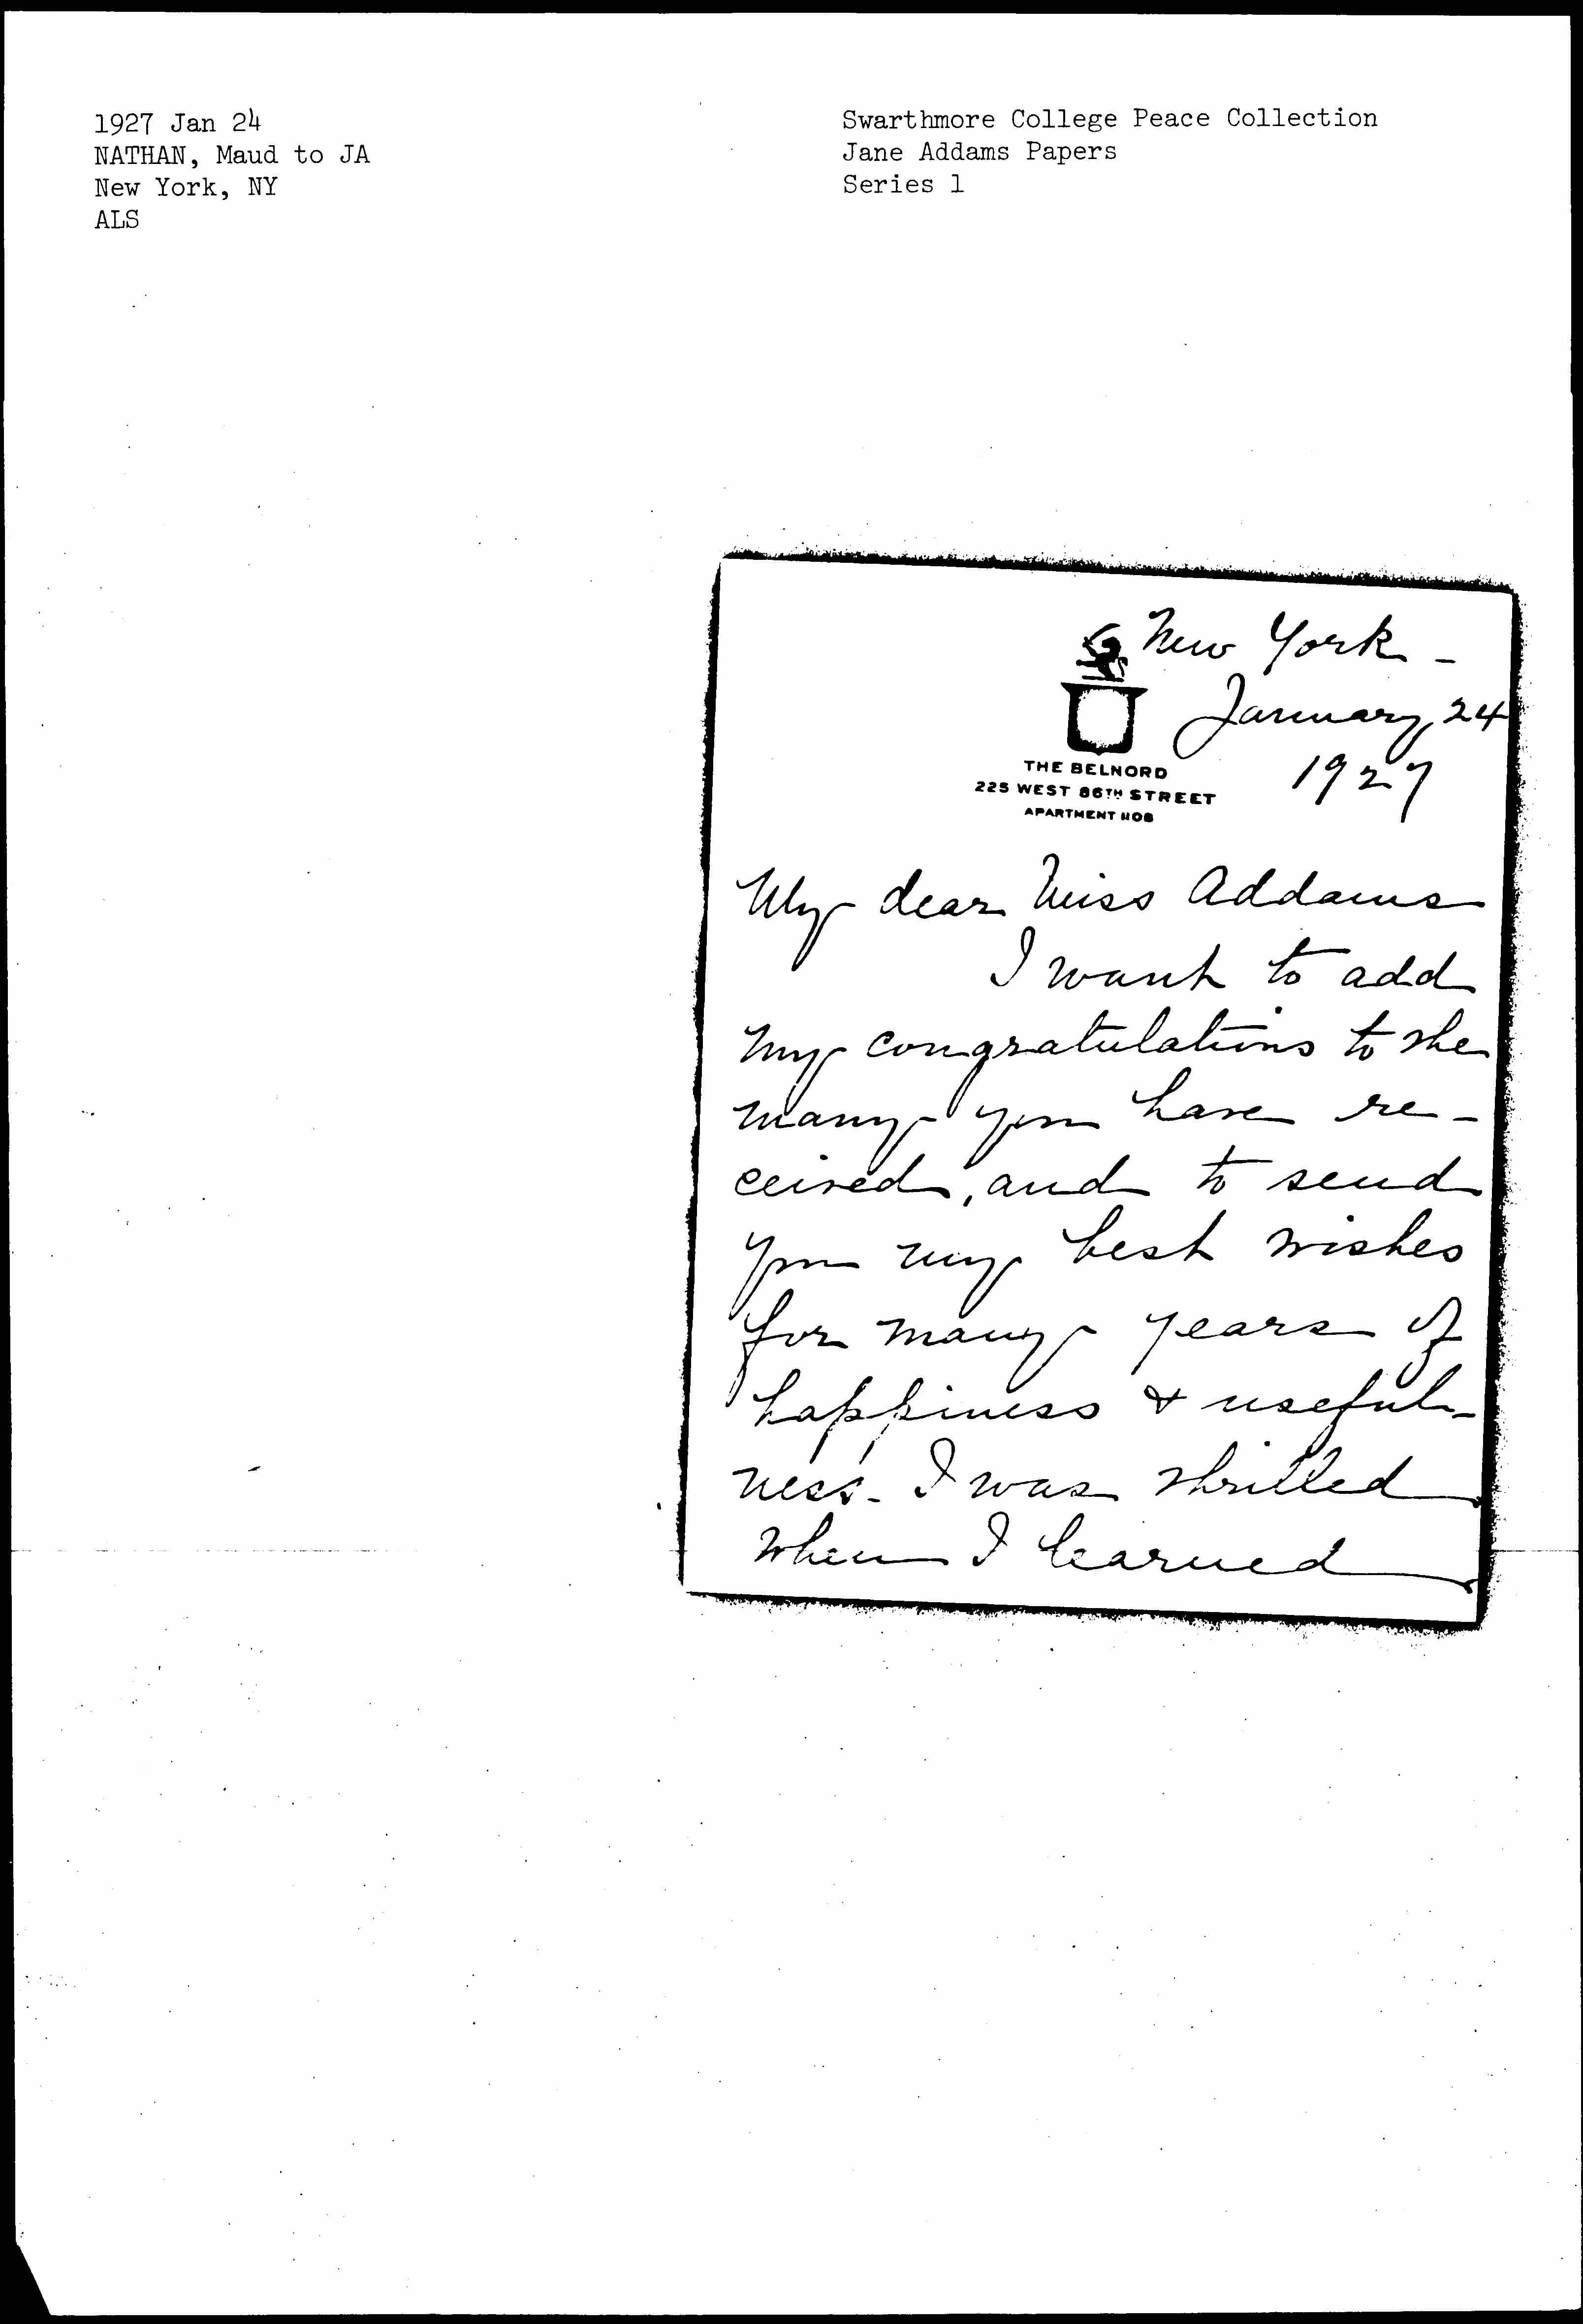 1927 Jan 24
NATHAN, Maud to JA
New York, NY
ALS
Swarthmore College Peace Collection
Jane Addams Papers
Series 1
New York -
January 24
1927
THE BELNORD
225 WEST 86TH STREET
APARTMENT 1108
My dear Miss Addams
I want to add
my congratulations to the
many you have re-
ceived, and to send
you my best wishes
for many years of
happiness & useful-
ness. I was thrilled
when I learned